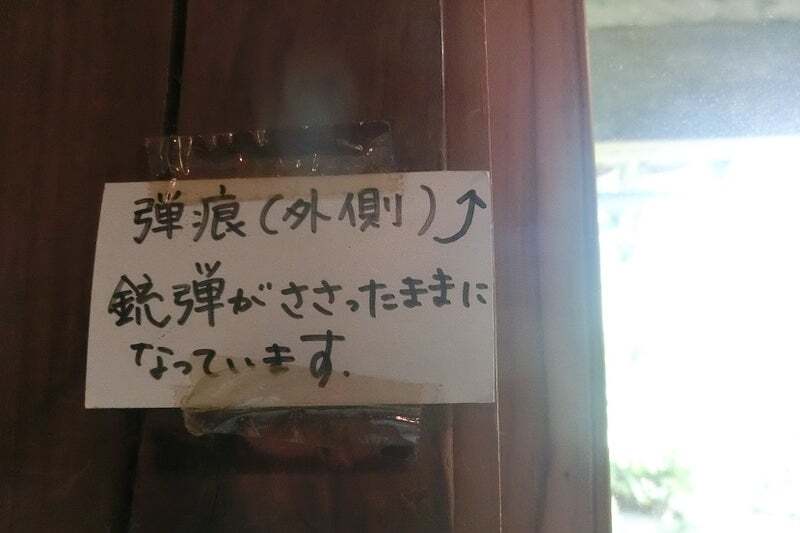 弾痕(外側)⤴
銃弾がささったままに
なっています.